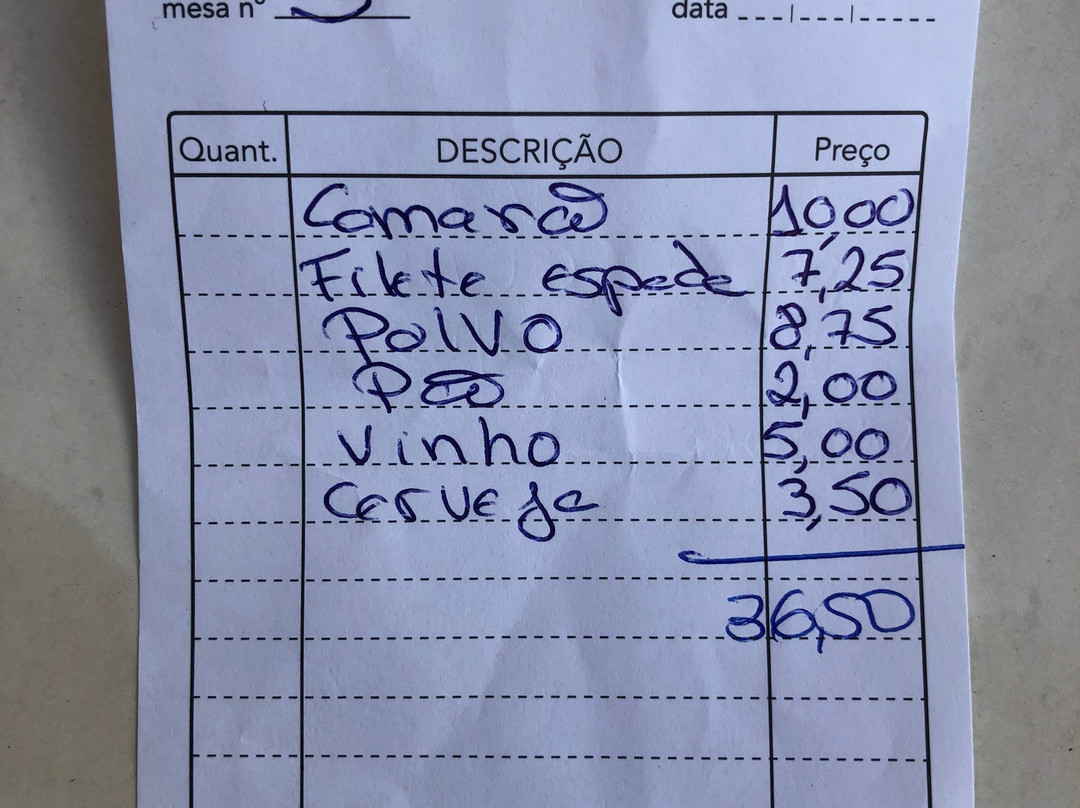 mesa nº
data
Quant. DESCRIÇÃO Preço
Camarão 10,00
Filete espada 7,25
Polvo 8,75
Pão 2,00
Vinho 5,00
Cerveja 3,50
36,50